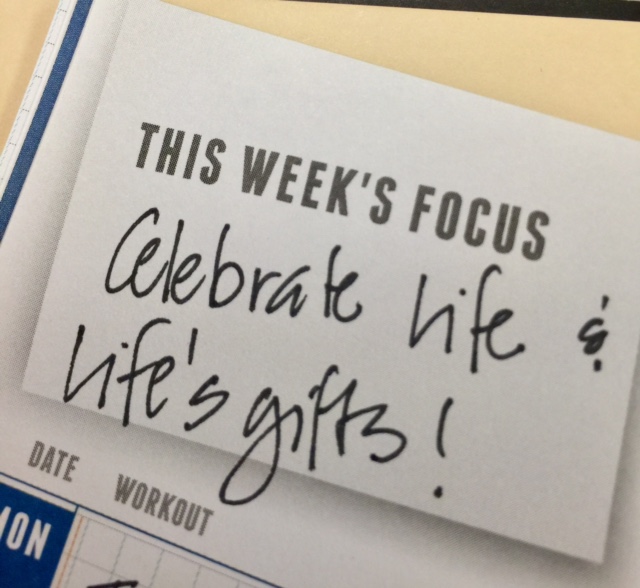 THIS WEEK'S FOCUS
Celebrate life &
life's gifts!
DATE WORKOUT